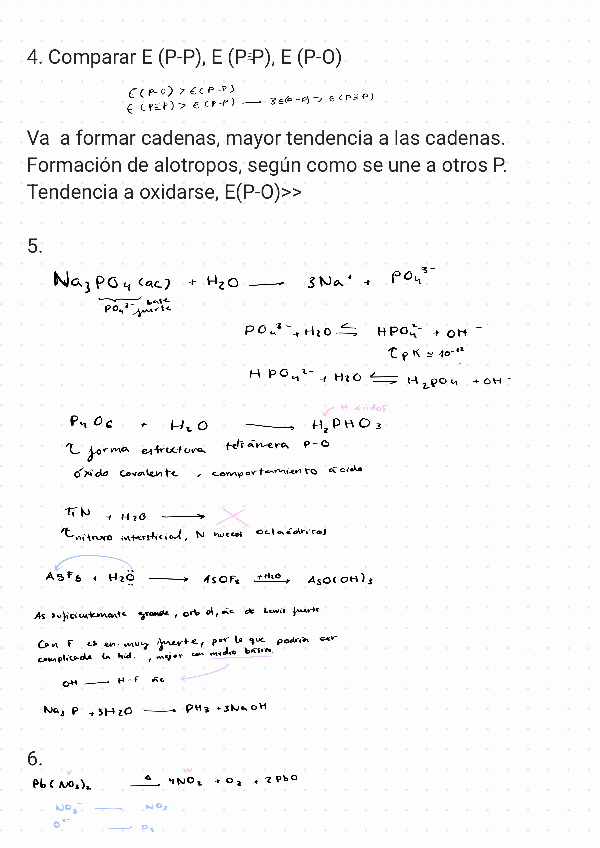 4. Comparar E (P-P), E (P≡P), E (P-O)
E(P-O) > E(P-P)
E (P≡P) > E (P-P) — 3E(P-P) > E(P≡P)
Va a formar cadenas, mayor tendencia a las cadenas.
Formación de alotropos, según como se une a otros P.
Tendencia a oxidarse, E(P-O)>>
5.
Na3PO4 (ac) + H2O — 3Na+ + PO4 3-
PO4 3- base fuerte
PO4 3- + H2O ⇌ HPO4 2- + OH-
pK ≈ 10-12
HPO4 2- + H2O ⇌ H2PO4 + OH-
H ácidos
P4O6 + H2O → H2PHO3
forma estructura tetiánera P-O
óxido covalente, comportamiento ácido
TiN + H2O →
nitruro intersticial, N huecos octaédricos
AsF5 + H2O → AsOF3 +H2O → AsO(OH)3
As suficientemente grande, orb d, ác de Lewis fuerte
Con F es en. muy fuerte, por lo que podría ser
complicada la hid., mejor con medio básico.
OH — H-F ác
Na3P + 3H2O → PH3 + 3NaOH
6.
V IV
Pb(NO3)2 Δ 4NO2 + O2 + 2PbO
NO3- — NO2
O2- — O2